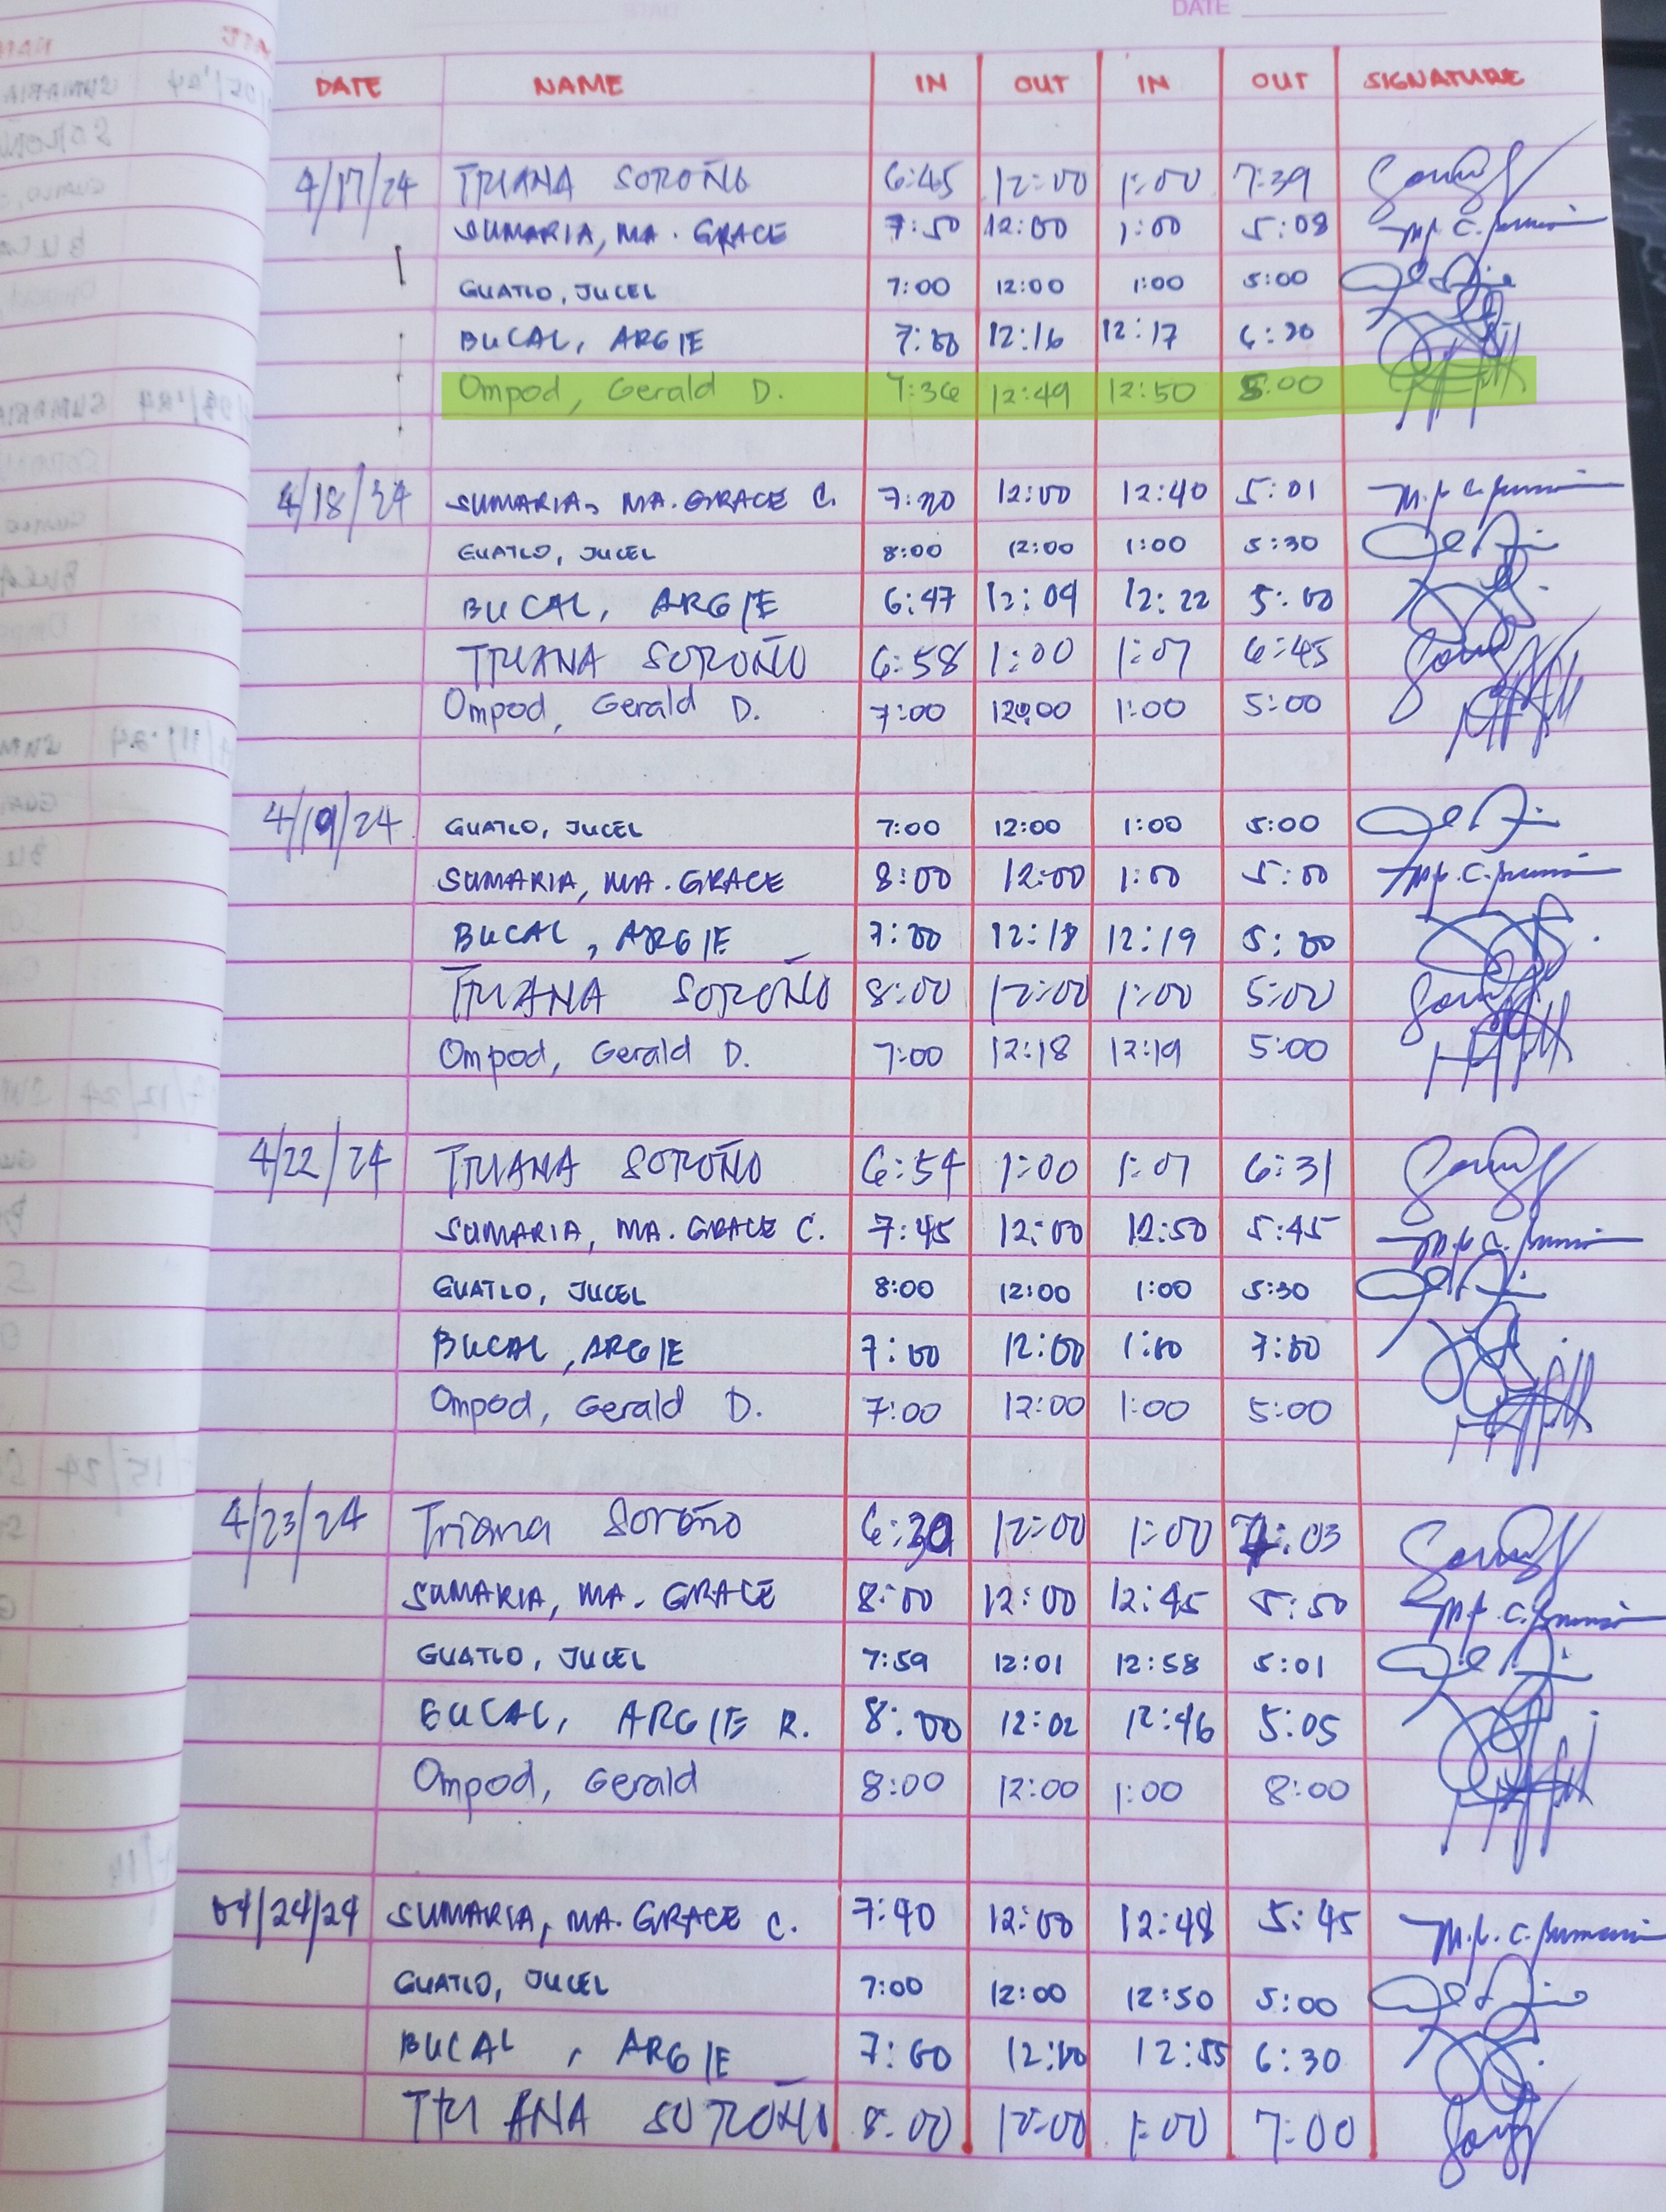 DATE
DATE NAME IN OUT IN OUT SIGNATURE
4/17/24 TRIANA SOROÑO 6:45 12:00 1:00 7:39
SUMARIA, MA. GRACE 7:50 12:00 1:00 5:08
GUATLO, JUCEL 7:00 12:00 1:00 5:00
BUCAL, ARGIE 7:00 12:16 12:17 6:30
Ompod, Gerald D. 7:36 12:49 12:50 5:00
4/18/24 SUMARIA, MA. GRACE C. 7:20 12:00 12:40 5:01
GUATLO, JUCEL 8:00 12:00 1:00 5:30
BUCAL, ARGIE 6:47 12:09 12:22 5:00
TRIANA SOROÑO 6:58 1:00 1:07 6:45
Ompod, Gerald D. 7:00 12:00 1:00 5:00
4/19/24 GUATLO, JUCEL 7:00 12:00 1:00 5:00
SUMARIA, MA. GRACE 8:00 12:00 1:00 5:00
BUCAL, ARGIE 7:00 12:18 12:19 5:00
TRIANA SOROÑO 8:00 12:00 1:00 5:00
Ompod, Gerald D. 7:00 12:18 12:19 5:00
4/22/24 TRIANA SOROÑO 6:54 1:00 1:07 6:31
SUMARIA, MA. GRACE C. 7:45 12:00 12:50 5:45
GUATLO, JUCEL 8:00 12:00 1:00 5:30
BUCAL, ARGIE 7:00 12:00 1:00 7:00
Ompod, Gerald D. 7:00 12:00 1:00 5:00
4/23/24 Triana Soroño 6:30 12:00 1:00 7:03
SUMARIA, MA. GRACE 8:00 12:00 12:45 5:50
GUATLO, JUCEL 7:59 12:01 12:58 5:01
BUCAL, ARGIE R. 8:00 12:02 12:46 5:05
Ompod, Gerald 8:00 12:00 1:00 8:00
04/24/24 SUMARIA, MA. GRACE C. 7:40 12:00 12:48 5:45
GUATLO, JUCEL 7:00 12:00 12:50 5:00
BUCAL, ARGIE 7:00 12:00 12:55 6:30
TRIANA SOROÑO 8:00 12:00 1:00 7:00